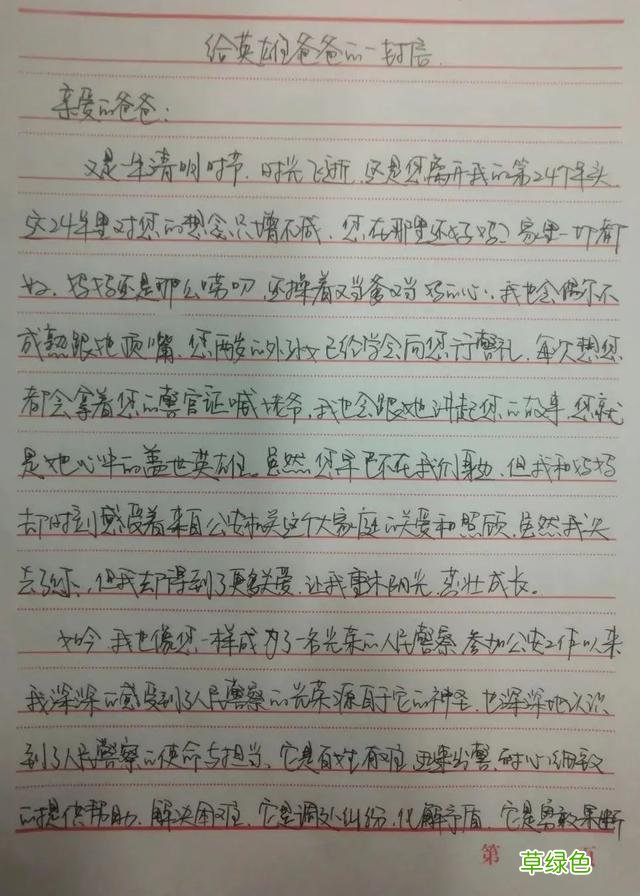 给英雄爸爸的一封信
亲爱的爸爸:
又是一年清明时节,时光飞逝,这是您离开我的第24个年头,
这24年里对您的想念只增不减,您在那里还好吗?家里一切都
好,妈妈还是那么唠叨,还操着又当爹又当妈的心,我也会偶尔不
成熟跟她顶嘴,您两岁的外孙女已经学会向您行警礼,每次想您
都会拿着您的警官证喊姥爷,我也会跟她讲起您的故事,您就
是她心中的盖世英雄。虽然您早已不在我们身边,但我和妈妈
却时刻感受着来自公安机关这个大家庭的关爱和照顾,虽然我失
去了您,但我却得到了更多关爱,让我重沐阳光,茁壮成长。
如今,我也像您一样成为了一名光荣的人民警察,参加公安工作以来
我深深的感受到了人民警察的光荣源自于它的神圣,也深深地认识
到了人民警察的使命与担当,它是百姓有难,迅速出警,耐心细致
的提供帮助,解决困难,它是调处纠纷,化解矛盾,它是勇敢果断
第 页
草绿色